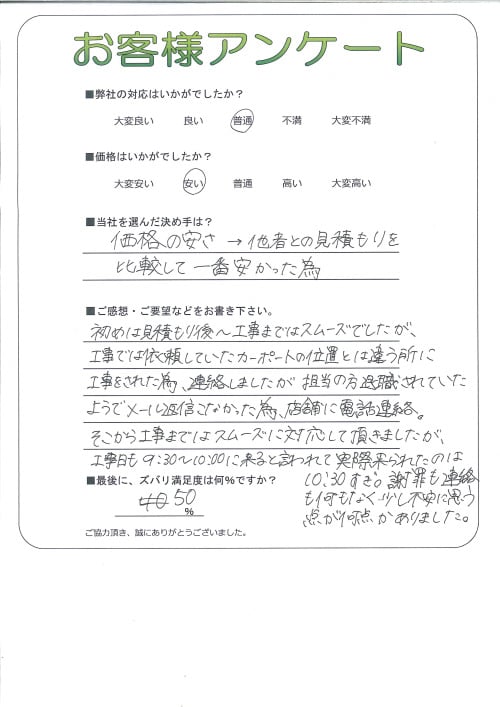 お客様アンケート
■弊社の対応はいかがでしたか？
大変良い 良い 普通 不満 大変不満
■価格はいかがでしたか？
大変安い 安い 普通 高い 大変高い
■当社を選んだ決め手は？
価格の安さ → 他者との見積もりを
比較して一番安かった為
■ご感想・ご要望などをお書き下さい。
初めは見積もり後～工事まではスムーズでしたが、
工事では依頼していたカーポートの位置とは違う所に
工事をされた為、連絡しましたが担当の方退職されていた
ようでメール返信こなかった為、店舗に電話連絡。
そこから工事まではスムーズに対応して頂きましたが、
工事日も9:30～10:00に来ると言われて実際来られたのは
10:30すぎ。謝罪も連絡
も何もなく少し不安に思う
点が何点かありました。
■最後に、ズバリ満足度は何％ですか？
40 50
％
ご協力頂き、誠にありがとうございました。